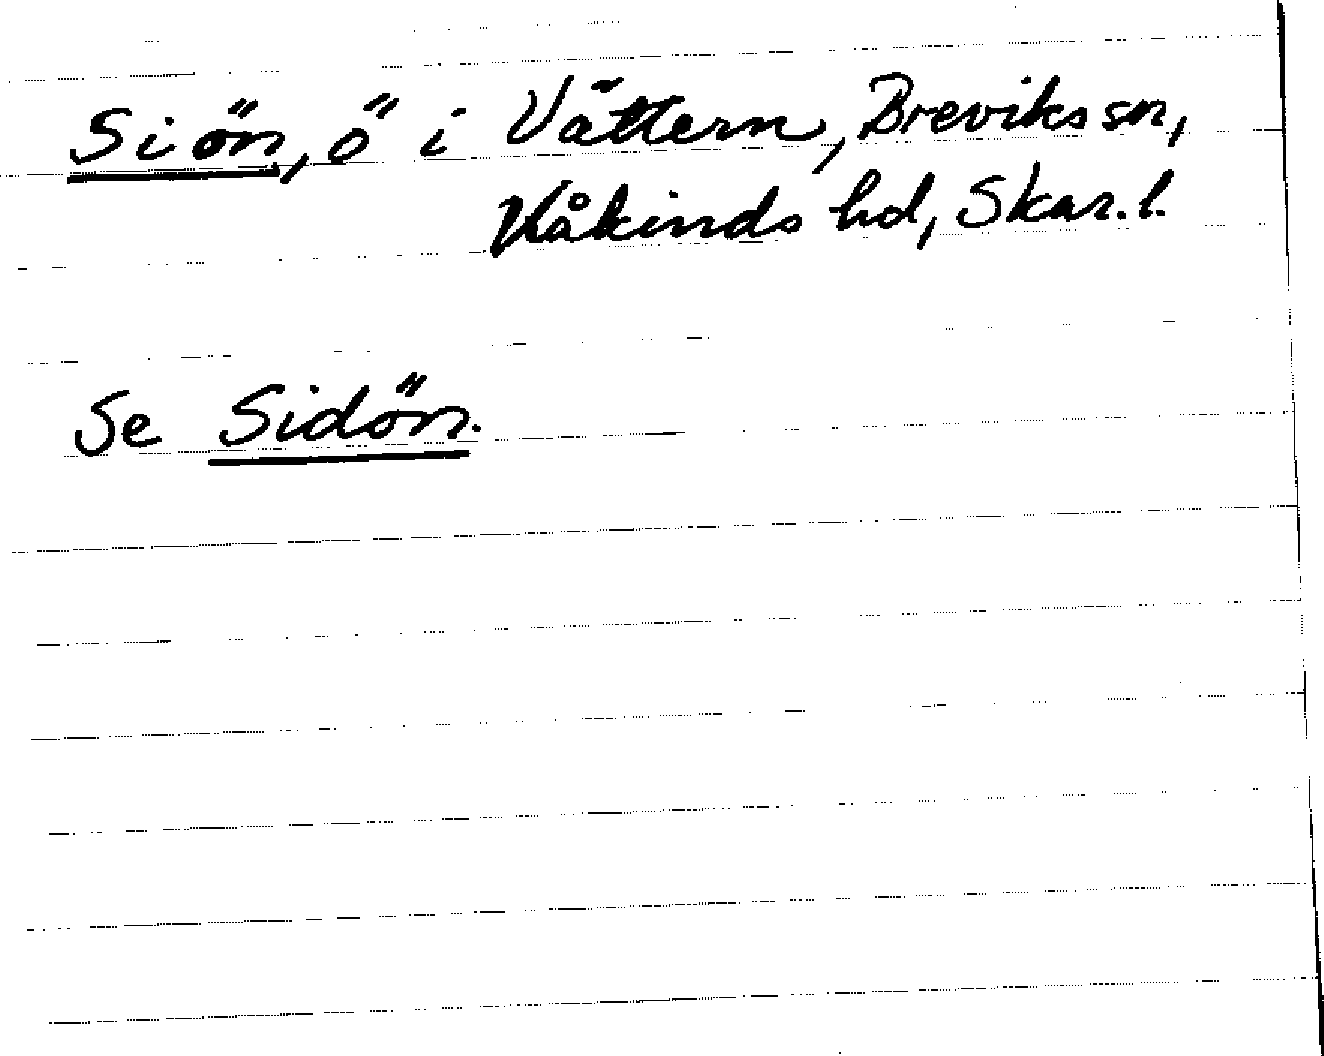 Siön, ö i Vättern, Breviks sn,
Kåkinds hd, Skar. l.
Se Sidön.